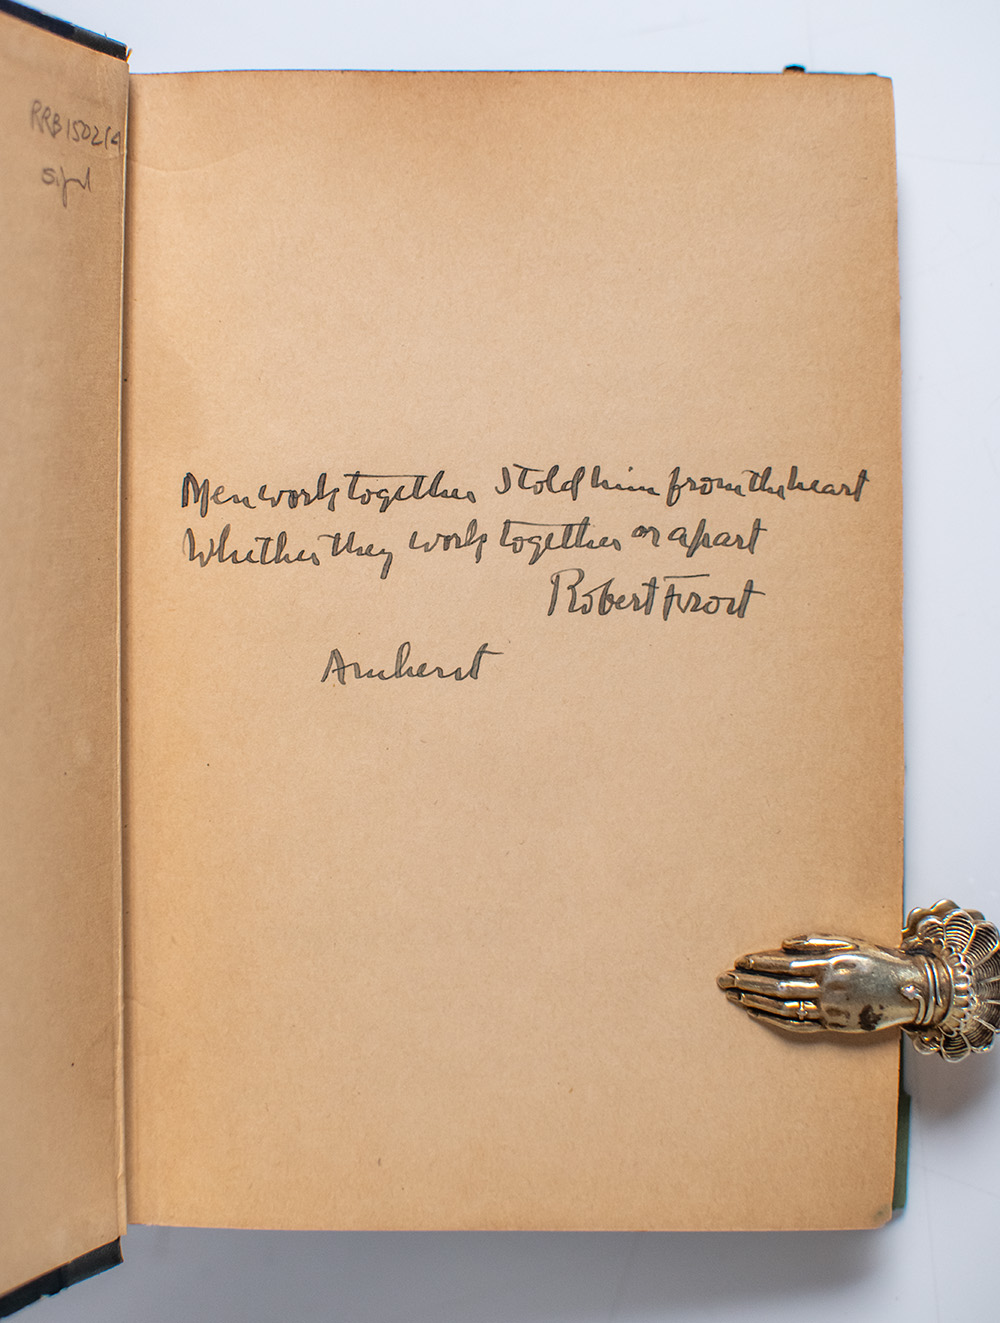 RRB150214
Signed
Men work together I told him from the heart
Whether they work together or apart
Robert Frost
Amherst